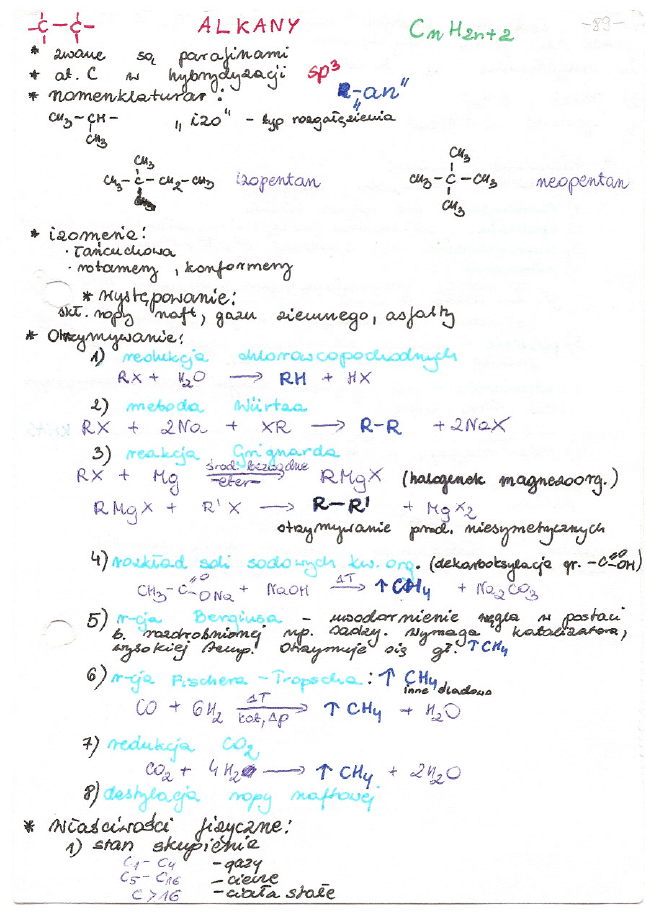 -C-C- ALKANY CnH2n+2 -89-
* zwane są parafinami
* at. C w hybrydyzacji sp³
* nomenklatura: R-„an"
CH₃-CH- „izo" - typ rozgałęzienia
CH₃
CH₃ CH₃
CH₃-C-CH₂-CH₃ izopentan CH₃-C-CH₃ neopentan
CH₃
* izomeria:
· łańcuchowa
· rotamery, konformery
* występowanie:
skł. ropy naft, gazu ziemnego, asfalty
* Otrzymywanie:
1) redukcja chlorowcopochodnych
RX + H₂O → RH + HX
2) metoda Würtza
RX + 2Na + XR → R-R + 2NaX
3) reakcja Grignarda
RX + Mg środ. bezwodne -eter- → RMgX (halogenek magnezoorg.)
RMgX + R'X → R-R' + MgX₂
otrzymywanie prod. niesymetycznych
4) rozkład soli sodowych kw. org. (dekarboksylacja gr. -C=O OH)
CH₃-C=O ONa + NaOH ΔT → ↑CH₄ + Na₂CO₃
5) r-cja Bergiusa - uwodornienie węgla w postaci
b. rozdrobnionej np. sadzy. Wymaga katalizatora,
wysokiej temp. Otrzymuje się gł. ↑CH₄
6) r-cja Fischera-Tropscha: ↑CH₄
inne śladowo
CO + 6H₂ ΔT kat, Δp → ↑CH₄ + H₂O
7) redukcja CO₂
CO₂ + 4H₂ → ↑CH₄ + 2H₂O
8) destylacja ropy naftowej
* Właściwości fizyczne:
1) stan skupienia
C₁-C₄ - gazy
C₅-C₁₆ - ciecze
C>16 - ciała stałe